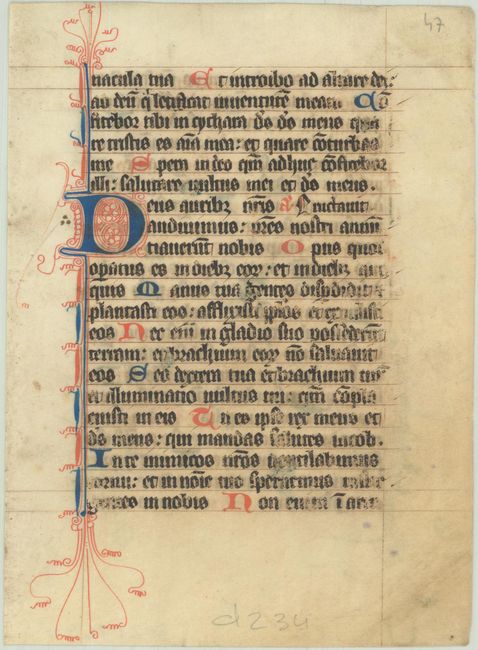 47
nacula tua Et introibo ad altare dei:
ad deū qͥ letificat iuuentutē meam Cō
fitebor tibi in cythara dс̄ dс̄ meus qua
re tristis es aīa mea: et quare cōturbas
me Spera in deo qm̄ adhuc cōfitebor
illi: salutare uultus mei et dс̄ meus.
Deus auribꝫ nr̄is
audiuimus: pr̄es nostri annū
tiauerunt nobis Opus quod
oꝑatus es in diebꝫ eoꝝ: et in diebꝫ anti
quis Manus tua gentes
plantasti eos: afflixisti pp̄los et expulisti
eos Nec eni̅ in gladio suo possederūt
terram: et brachium eoꝝ nō saluauit
eos Sed dextera tua et brachium tuū
et illuminatio uultus tui: qm̄ cōpla
cuisti in eis Tu es ipse rex meus et
dс̄ meus: qui mandas salutes iacob.
In te inimicos nr̄os uentilabimus
cornu: et in noīe tuo spernemus insur
gentes in nobis Non enim ī arcu
d234